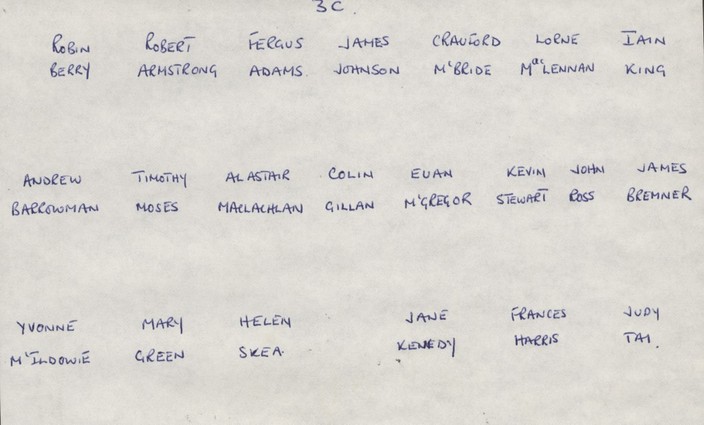 3C.
ROBIN ROBERT FERGUS JAMES CRAUFORD LORNE IAIN
BERRY ARMSTRONG ADAMS. JOHNSON McBRIDE MacLENNAN KING
ANDREW TIMOTHY ALASTAIR COLIN EUAN KEVIN JOHN JAMES
BARROWMAN MOSES MACLACHLAN GILLAN McGREGOR STEWART ROSS BREMNER
YVONNE MARY HELEN JANE FRANCES JUDY
McILDOWIE GREEN SKEA. KENEDY HARRIS TAI.